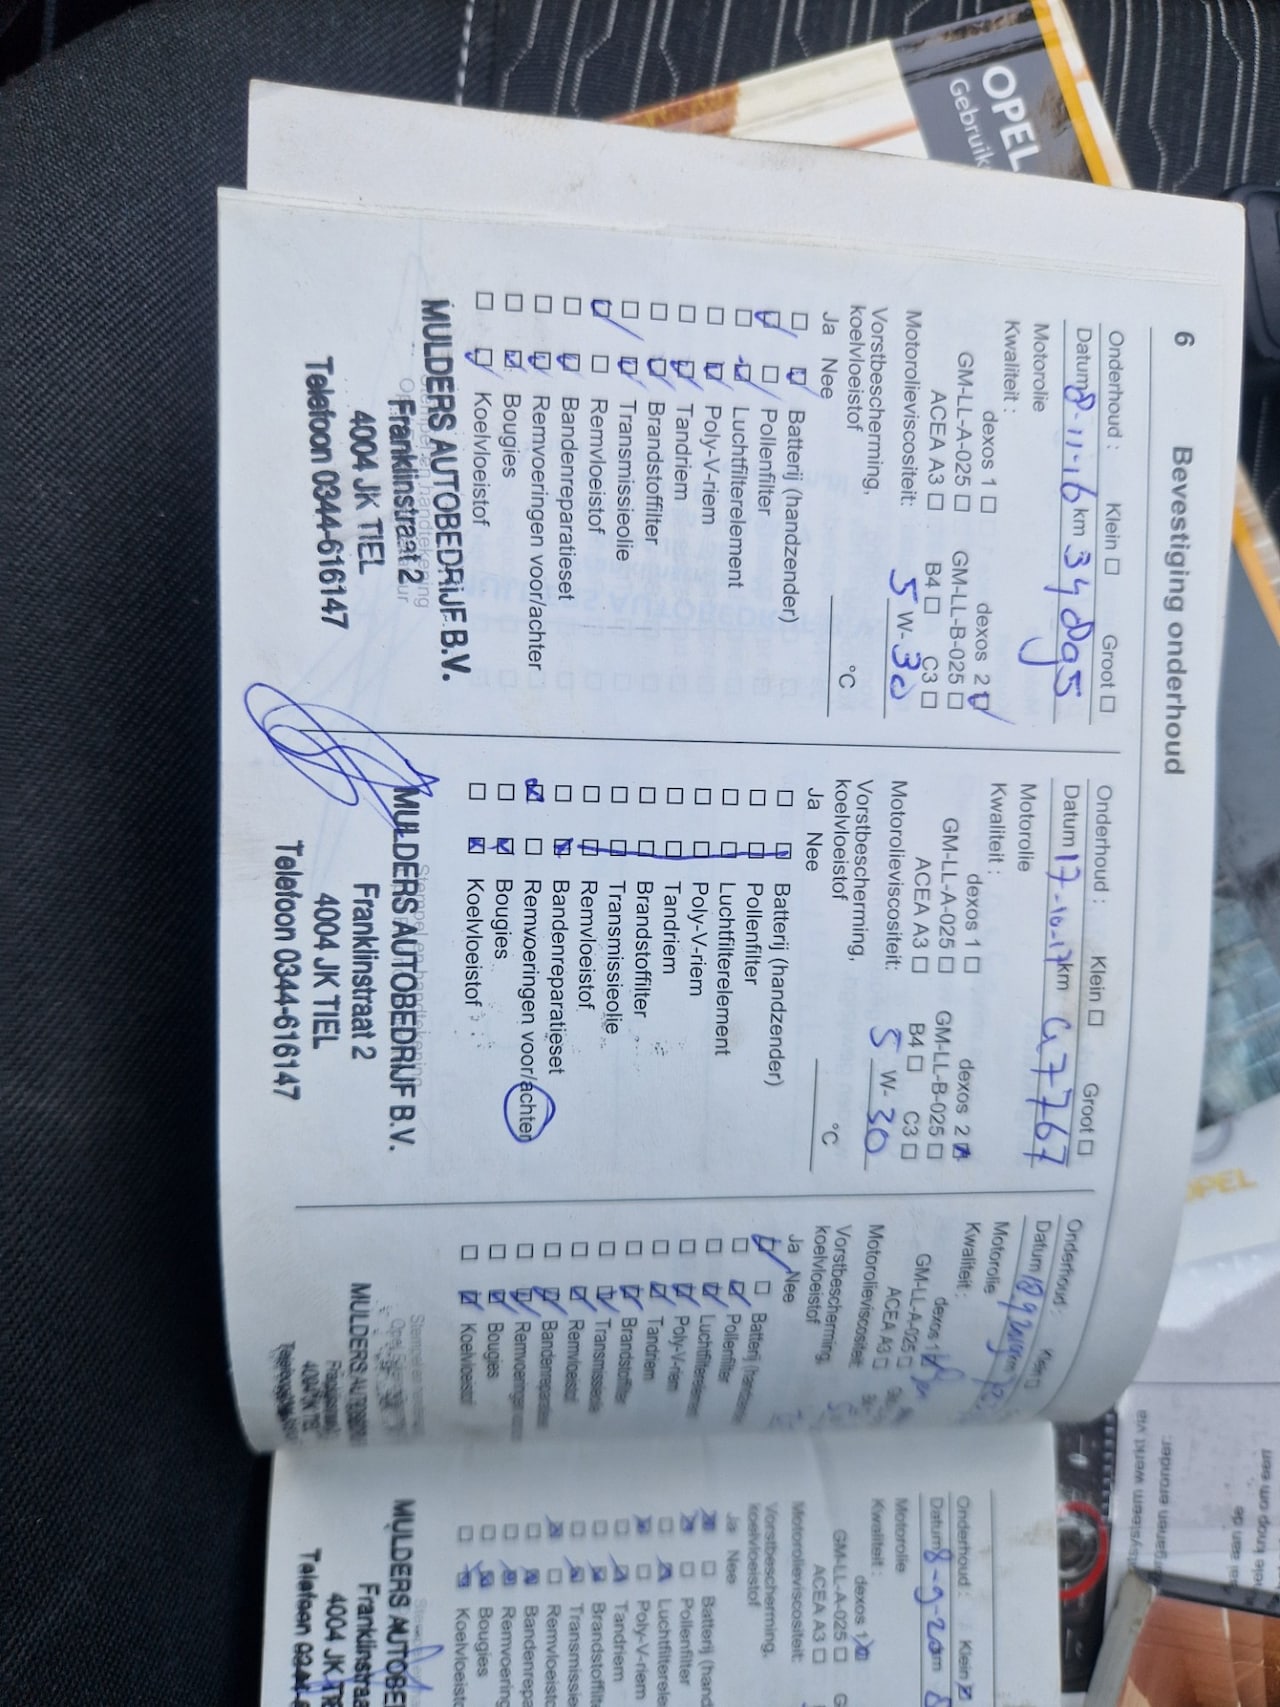 OPEL
Gebruik
6 Bevestiging onderhoud
Onderhoud : Klein ☐ Groot ☐
Datum 8-11-16 km 34895
Motorolie
Kwaliteit :
dexos 1 ☐ dexos 2 ☑
GM-LL-A-025 ☐ GM-LL-B-025 ☐
ACEA A3 ☐ B4 ☐ C3 ☐
Motorolieviscositeit: 5 W-30
Vorstbescherming,
koelvloeistof °C
Ja Nee
☐ ☑ Batterij (handzender)
☑ ☐ Pollenfilter
☐ ☑ Luchtfilterelement
☐ ☑ Poly-V-riem
☐ ☑ Tandriem
☐ ☑ Brandstoffilter
☐ ☑ Transmissieolie
☑ ☐ Remvloeistof
☐ ☑ Bandenreparatieset
☐ ☑ Remvoeringen voor/achter
☐ ☑ Bougies
☐ ☑ Koelvloeistof
MULDERS AUTOBEDRIJF B.V.
Franklinstraat 2
4004 JK TIEL
Telefoon 0344-616147
Onderhoud : Klein ☐ Groot ☐
Datum 17-10-17 km 47767
Motorolie
Kwaliteit :
dexos 1 ☐ dexos 2 ☒
GM-LL-A-025 ☐ GM-LL-B-025 ☐
ACEA A3 ☐ B4 ☐ C3 ☐
Motorolieviscositeit: 5 W-30
Vorstbescherming,
koelvloeistof °C
Ja Nee
☐ ☑ Batterij (handzender)
☐ ☑ Pollenfilter
☐ ☑ Luchtfilterelement
☐ ☑ Poly-V-riem
☐ ☑ Tandriem
☐ ☑ Brandstoffilter
☐ ☑ Transmissieolie
☐ ☑ Remvloeistof
☐ ☒ Bandenreparatieset
☒ ☐ Remvoeringen voor/achter
☐ ☒ Bougies
☐ ☒ Koelvloeistof
Stempel en handtekening
MULDERS AUTOBEDRIJF B.V.
Franklinstraat 2
4004 JK TIEL
Telefoon 0344-616147
Onderhoud : Klein ☐
Datum
Motorolie
Kwaliteit :
dexos 1
GM-LL-A-025 ☐
ACEA A3 ☐
Motorolieviscositeit
Vorstbescherming,
koelvloeistof
Ja Nee
☑ ☐ Batterij
☐ ☑ Pollenfilter
☐ ☑ Luchtfilterelement
☐ ☑ Poly-V-riem
☐ ☑ Tandriem
☐ ☑ Brandstoffilter
☐ ☑ Transmissieolie
☐ ☑ Remvloeistof
☐ ☑ Bandenreparatieset
☐ ☑ Remvoeringen
☐ ☑ Bougies
☐ ☑ Koelvloeistof
MULDERS
Onderhoud : Klein ☒
Datum 8-9-20
Motorolie
Kwaliteit :
dexos 1
GM-LL-A-025 ☐
ACEA A3 ☐
Motorolieviscositeit:
Vorstbescherming,
koelvloeistof
Ja Nee
☒ ☐ Batterij (hand
☒ ☐ Pollenfilter
☐ ☒ Luchtfiltere
☒ ☐ Poly-V-riem
☐ ☒ Tandriem
☐ ☒ Brandstoffilt
☐ ☒ Transmissie
☒ ☐ Remvloeisto
☐ ☒ Bandenrepa
☐ ☒ Remvoering
☐ ☒ Bougies
☐ ☒ Koelvloeist
MULDERS AUTOBE
Franklinstraa
4004 JK
Telefoon
OPEL